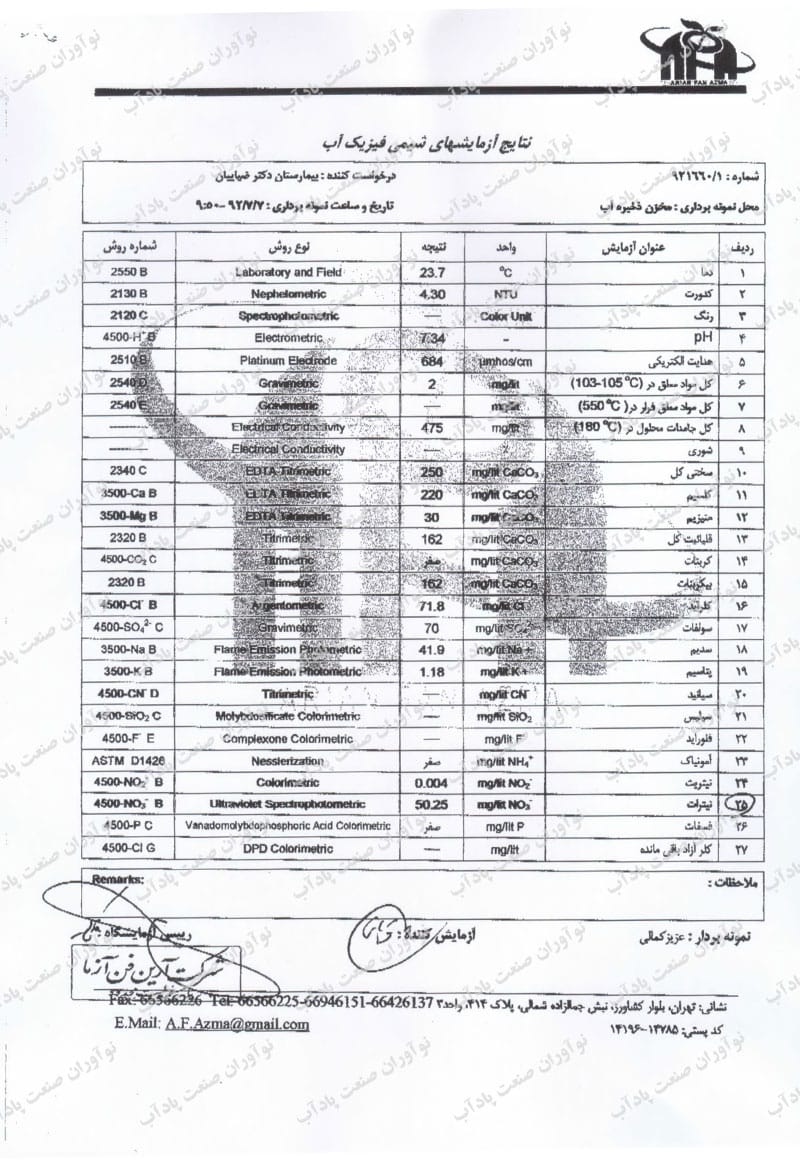 ARIAN FAN AZMA
نتایج آزمایشهای شیمی فیزیک آب
شماره : ۹۲۱۶۶۰/۱ درخواست کننده : بیمارستان دکتر ضیاییان
محل نمونه برداری : مخزن ذخیره آب تاریخ و ساعت نمونه برداری : ۹۲/۷/۷ – ۹:۵۰
ردیف عنوان آزمایش واحد نتیجه نوع روش شماره روش
۱ دما °C 23.7 Laboratory and Field 2550 B
۲ کدورت NTU 4.30 Nephelometric 2130 B
۳ رنگ Color Unit — Spectrophotometric 2120 C
۴ pH - 7.34 Electrometric 4500-H⁺ B
۵ هدایت الکتریکی µmhos/cm 684 Platinum Electrode 2510 B
۶ کل مواد معلق در (103-105 °C) mg/lit 2 Gravimetric 2540 D
۷ کل مواد معلق فرار در (550 °C) mg/lit — Gravimetric 2540 E
۸ کل جامدات محلول در (180 °C) mg/lit 475 Electrical Conductivity ——
۹ شوری — Electrical Conductivity ——
۱۰ سختی کل mg/lit CaCO₃ 250 EDTA Titrimetric 2340 C
۱۱ کلسیم mg/lit CaCO₃ 220 EDTA Titrimetric 3500-Ca B
۱۲ منیزیم mg/lit CaCO₃ 30 EDTA Titrimetric 3500-Mg B
۱۳ قلیائیت کل mg/lit CaCO₃ 162 Titrimetric 2320 B
۱۴ کربنات mg/lit CaCO₃ صفر Titrimetric 4500-CO₂ C
۱۵ بیکربنات mg/lit CaCO₃ 162 Titrimetric 2320 B
۱۶ کلراید mg/lit Cl⁻ 71.8 Argentometric 4500-Cl⁻ B
۱۷ سولفات mg/lit SO₄²⁻ 70 Gravimetric 4500-SO₄²⁻ C
۱۸ سدیم mg/lit Na+ 41.9 Flame Emission Photometric 3500-Na B
۱۹ پتاسیم mg/lit K+ 1.18 Flame Emission Photometric 3500-K B
۲۰ سیانید mg/lit CN⁻ — Titrimetric 4500-CN⁻ D
۲۱ سیلیس mg/lit SiO₂ — Molybdosilicate Colorimetric 4500-SiO₂ C
۲۲ فلوراید mg/lit F⁻ — Complexone Colorimetric 4500-F⁻ E
۲۳ آمونیاک mg/lit NH₄⁺ صفر Nesslerization ASTM D1426
۲۴ نیتریت mg/lit NO₂⁻ 0.004 Colorimetric 4500-NO₂⁻ B
۲۵ نیترات mg/lit NO₃⁻ 50.25 Ultraviolet Spectrophotometric 4500-NO₃⁻ B
۲۶ فسفات mg/lit P صفر Vanadomolybdophosphoric Acid Colorimetric 4500-P C
۲۷ کلر آزاد باقی مانده mg/lit — DPD Colorimetric 4500-Cl G
ملاحظات : Remarks:
نمونه بردار : عزیز کمالی آزمایش کننده : رییس آزمایشگاه :
شرکت آرین فن آزما
نشانی: تهران، بلوار کشاورز، نبش جمالزاده شمالی، پلاک ۴۱۴، واحد۲ Fax: 66566226 Tel: 66566225-66946151-66426137
کد پستی: ۱۳۷۸۵-۱۴۱۹۶ E.Mail: A.F.Azma@gmail.com
نوآوران صنعت پادآب